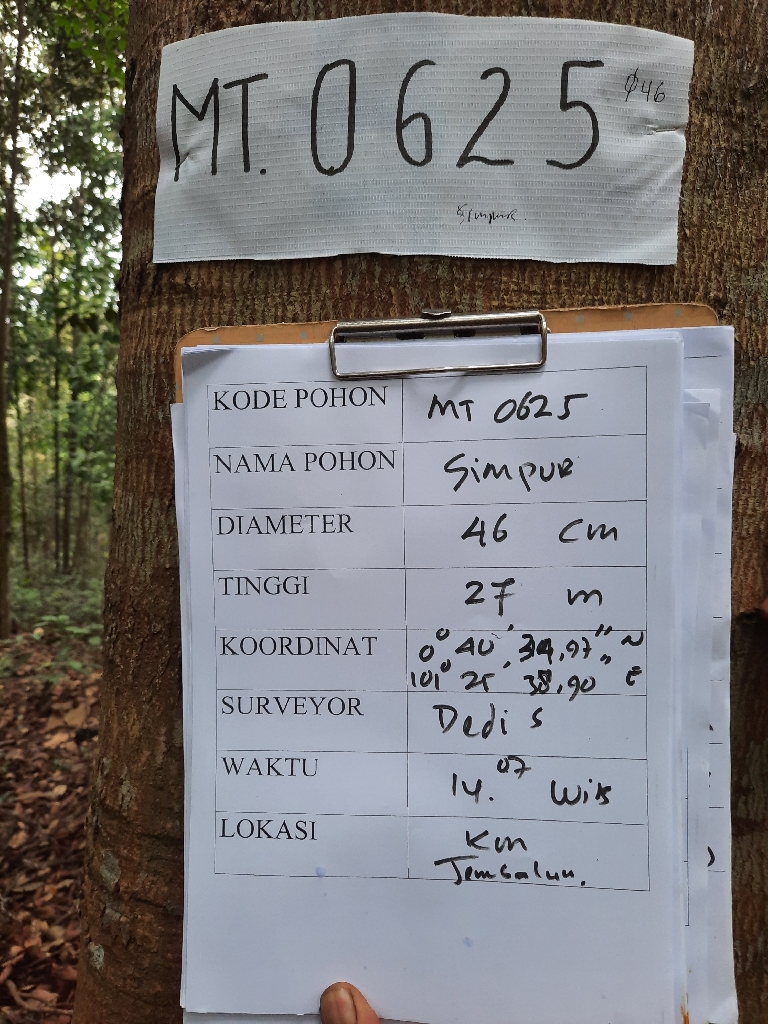 MT. 0625 ø46
Simpur
KODE POHON MT 0625
NAMA POHON Simpur
DIAMETER 46 cm
TINGGI 27 m
KOORDINAT 0° 40' 34,97" N
101° 25' 38,90" E
SURVEYOR Dedi S
WAKTU 14.07 WIB
LOKASI KM